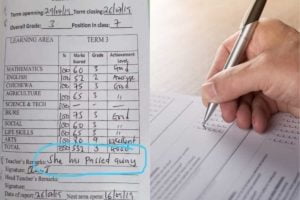 Term opening 24/04/19 Term closing 26/07/19
Overall Grade: 3 Position in class: 7
LEARNING AREA TERM 3
Marks Scored Grade Achievement Level
MATHEMATICS 100 60 3 Good
ENGLISH 100 52 2 Average
CHICHEWA 100 75 3 Good
AGRICULTURE 100 65 3 "
SCIENCE & TECH -
BK/RE 100 75 3 Good
SOCIAL 100 60 3 "
LIFE SKILLS 100 65 3 "
ARTS 100 80 Excellent
TOTAL 532 3 Good
Teacher's Remarks: She has passed away
Signature:
Head Teacher's Remarks
Signature:
Date of report: 26/07/19 Next term opens 16/09/19